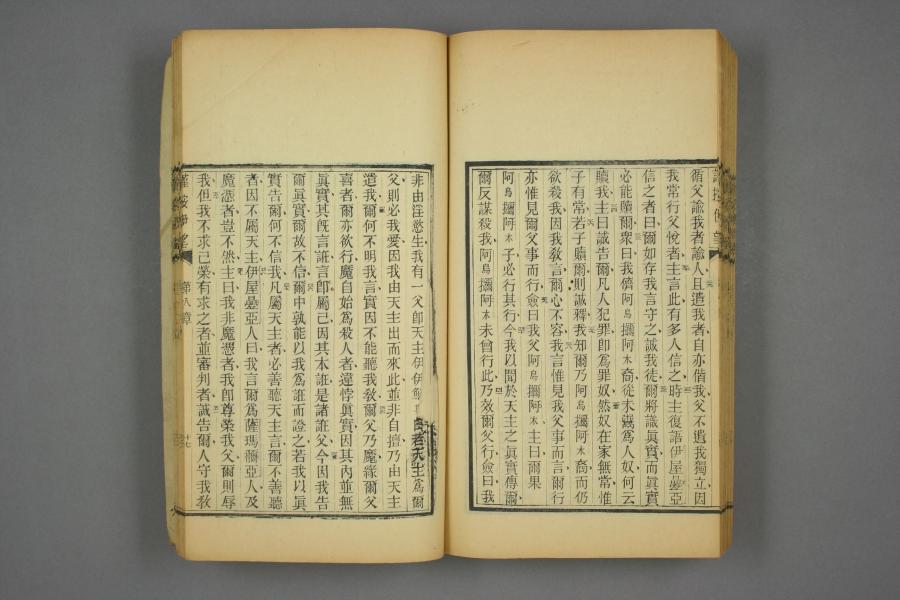 循父諭我者諭人且遣我者自亦偕我父不遺我獨立因
我常行父悅者主言此有多人信之時主復語伊屋曡亞
信之者曰爾如存我言守之誠我徒爾將識眞實而眞實
必能贖爾衆曰我儕阿烏攔阿木裔從未嘗爲人奴何云
贖我主曰誠告爾凡人犯罪卽爲罪奴然奴在家無常惟
子有常若子贖爾則誠釋我知爾乃阿烏攔阿木裔而仍
欲殺我因我敎言爾心不容我言惟見我父事而言爾行
亦惟見爾父事而行僉曰我父阿烏攔阿木主曰爾果
阿烏攔阿木子必行其行今我以聞於天主之眞實傳爾
爾反謀殺我阿烏攔阿木未曾行此乃效爾父行僉曰我
非由淫慾生我有一父卽天主伊伊穌曰若天主爲爾
父則必我愛因我由天主出而來此並非自擅乃由天主
遣我爾何不明我言實因不能聽我敎爾父乃魔緣爾父
喜者爾亦欲行魔自始爲殺人者違悖眞實因其內並無
眞實其旣言誑言卽屬己因其本誑是諸誑父今因我告
爾眞實爾故不信爾中孰能以我爲誑而證之若我以眞
實告爾何不信我凡屬天主者必善聽天主言爾不善聽
者因不屬天主伊屋曡亞人曰我言爾爲薩瑪爾亞人及
魔憑者豈不然主曰我非魔憑者我卽尊榮我父爾則辱
我但我不求己榮有求之者並審判者誠告爾人守我敎
第八章